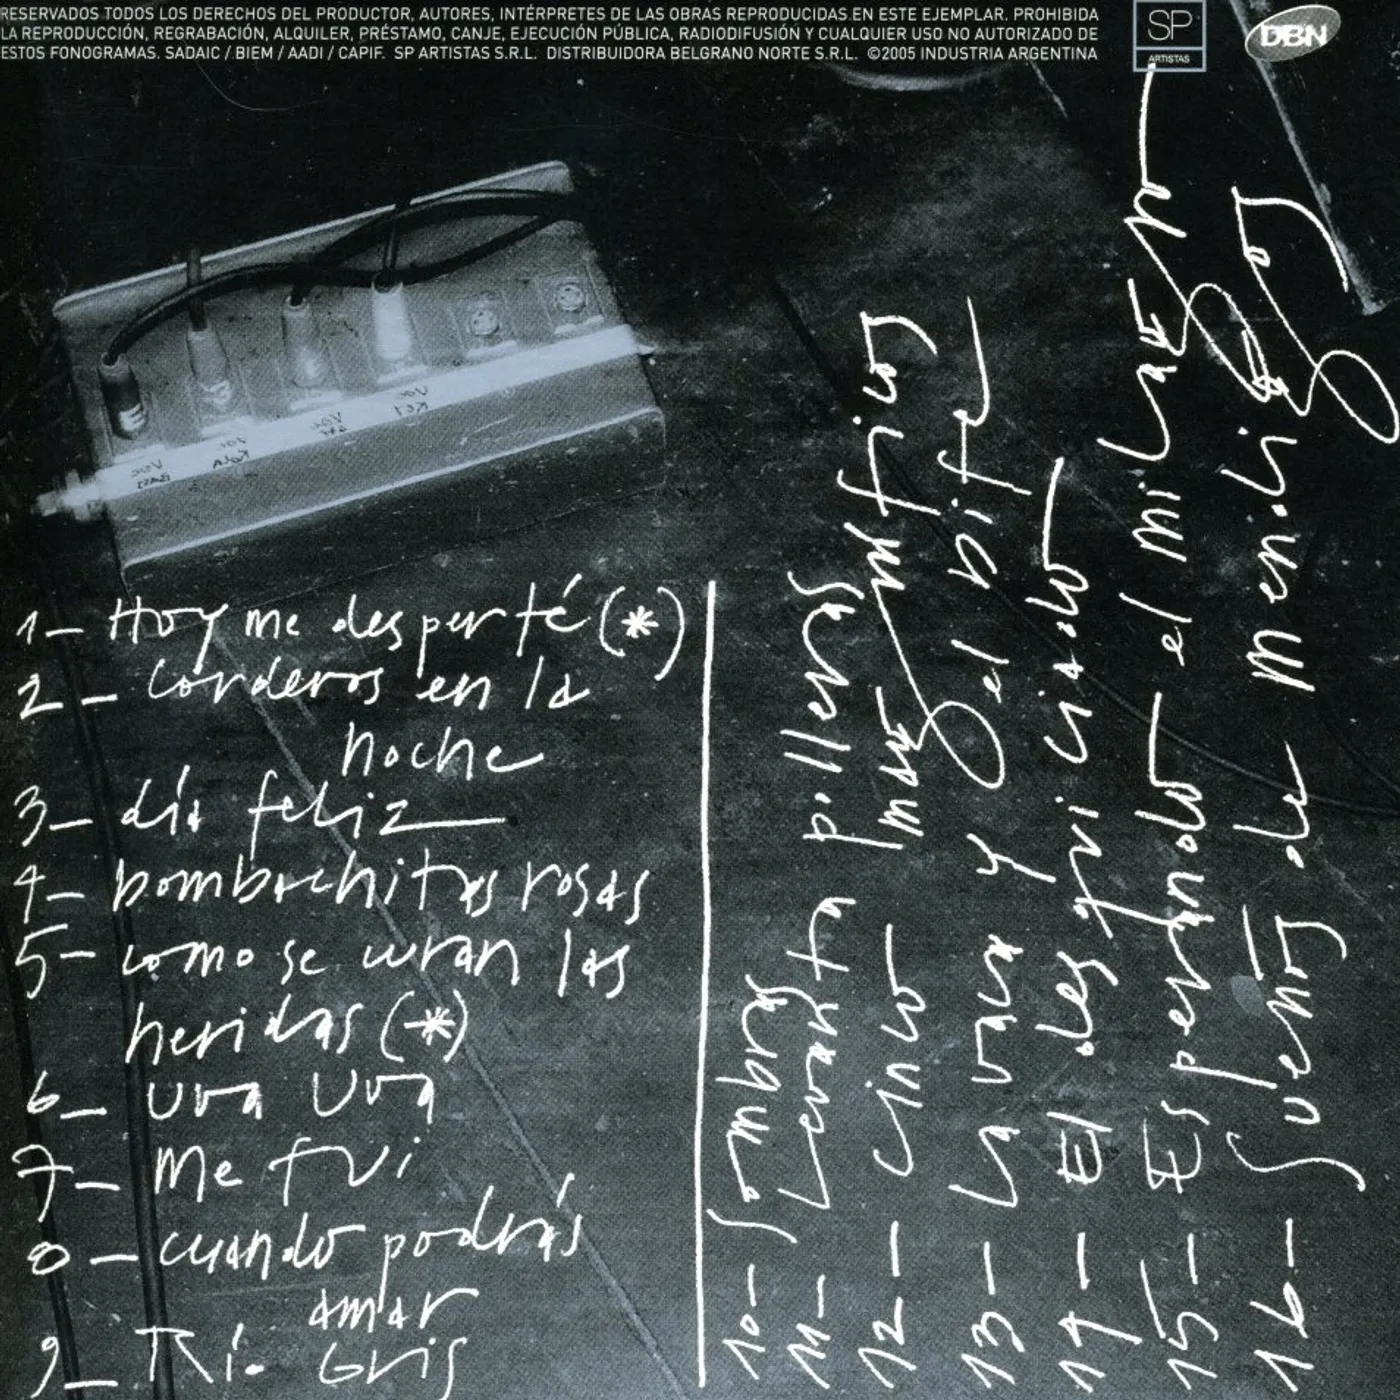 RESERVADOS TODOS LOS DERECHOS DEL PRODUCTOR, AUTORES, INTÉRPRETES DE LAS OBRAS REPRODUCIDAS EN ESTE EJEMPLAR. PROHIBIDA
LA REPRODUCCIÓN, REGRABACIÓN, ALQUILER, PRÉSTAMO, CANJE, EJECUCIÓN PÚBLICA, RADIODIFUSIÓN Y CUALQUIER USO NO AUTORIZADO DE
ESTOS FONOGRAMAS. SADAIC / BIEM / AADI / CAPIF. SP ARTISTAS S.R.L. DISTRIBUIDORA BELGRANO NORTE S.R.L. ©2005 INDUSTRIA ARGENTINA
SP
ARTISTAS
DBN
1- Hoy me desperté (*)
2- Corderos en la
noche
3- día feliz
4- bombachitas rosas
5- como se curan las
heridas (*)
6- uva uva
7- Me fui
8- cuando podrás
amar
9- Río Gris
10- Sombras
11- Levanta polleras
12- cinco magníficos
13- La vaca y el bife
14- El desgraciado
15- Esperando el milagro
16- Sueños de mendigos